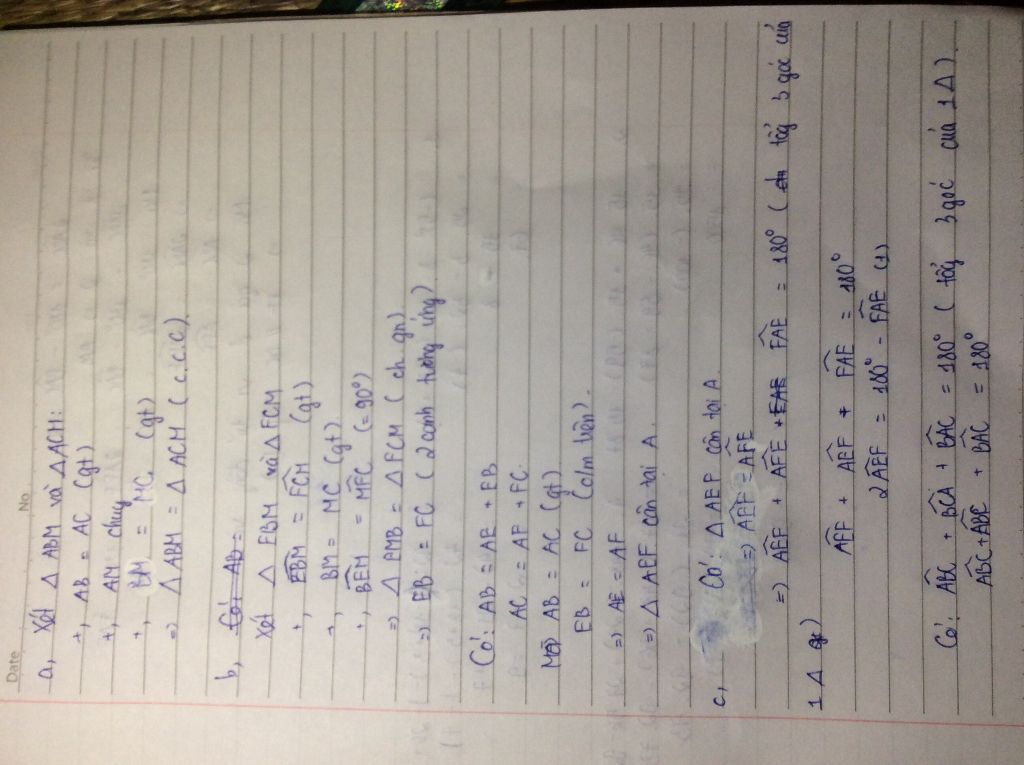 Date No
a, Xét Δ ABM và Δ ACM:
+, AB = AC (gt)
+, AM chung
+, BM = MC (gt)
=> Δ ABM = Δ ACM (c.c.c)
b, Có: AB =
Xét Δ EBM và Δ FCM
+, EBM̂ = FCM̂ (gt)
+, BM = MC (gt)
+, BEM̂ = MFĈ (= 90°)
=> Δ EMB = Δ FCM (ch gn)
=> EB = FC (2 cạnh tương ứng)
Có: AB = AE + EB
AC = AF + FC
Mà AB = AC (gt)
EB = FC (c/m trên).
=> AE = AF
=> Δ AEF cân tại A.
c, Có: Δ AEF cân tại A.
=> AEF̂ = AFÊ
=> AEF̂ + AFÊ + FAÊ = 180° ( tổng 3 góc của
1 Δ )
AEF̂ + AEF̂ + FAÊ = 180°
2AEF̂ = 180° - FAÊ (1)
Có: ABĈ + BCÂ + BAĈ = 180° ( tổng 3 góc của 1 Δ )
ABĈ + ABĈ + BAĈ = 180°